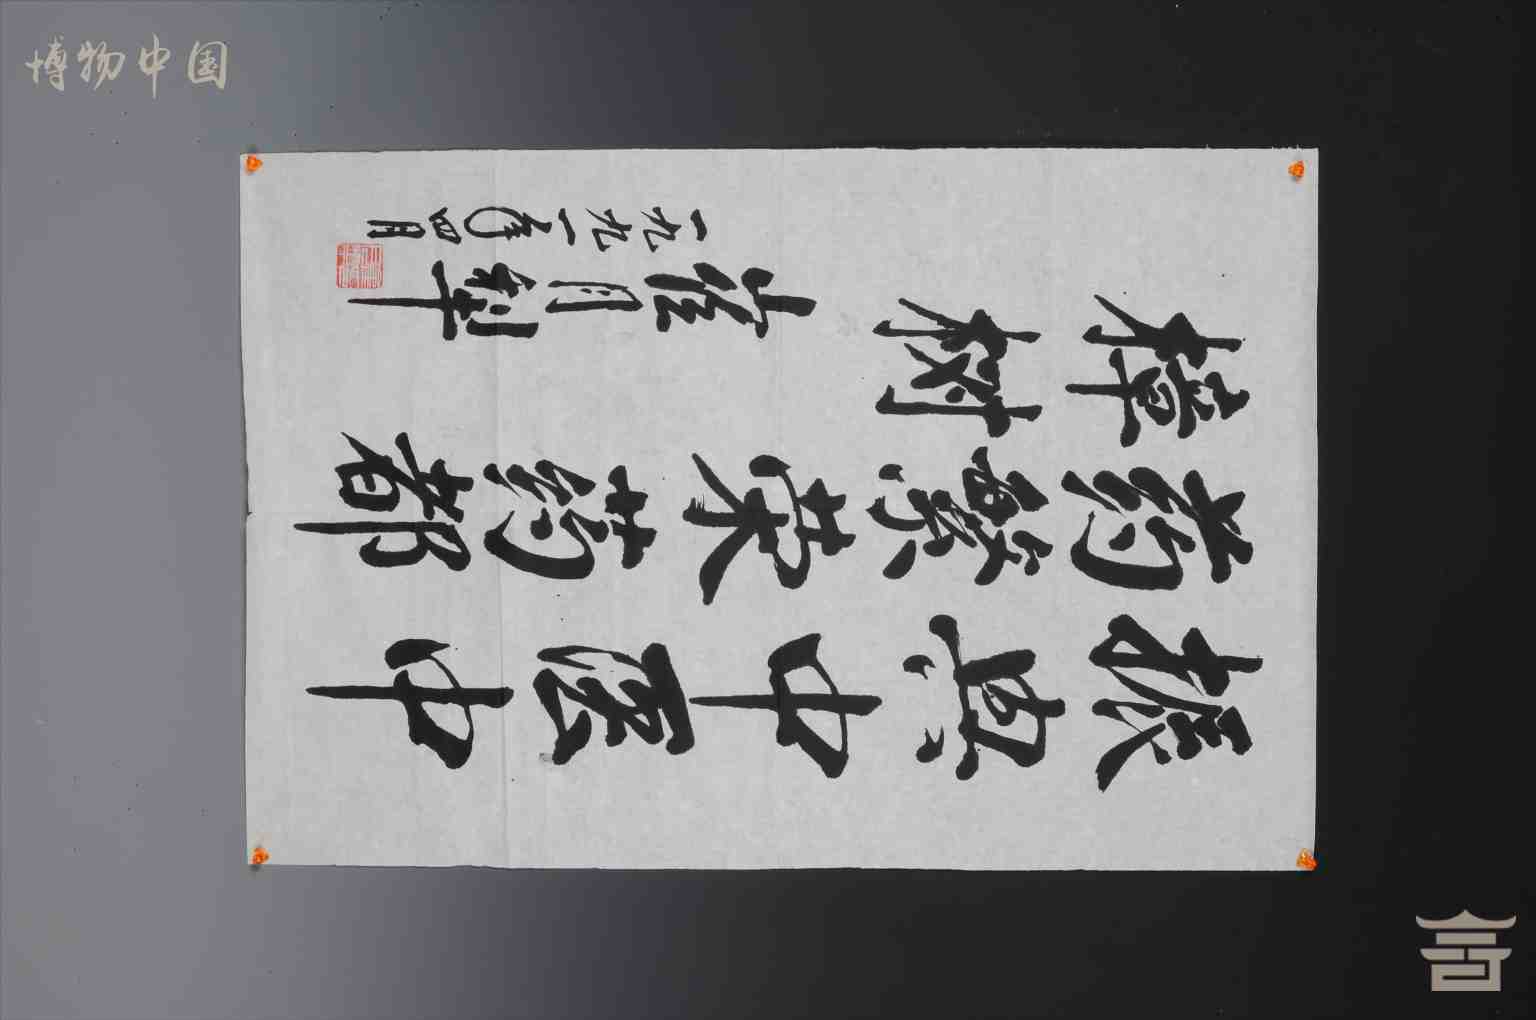 博物中国
振興中医中
药繁荣药都
樟树
崔月犁
一九九一年四月